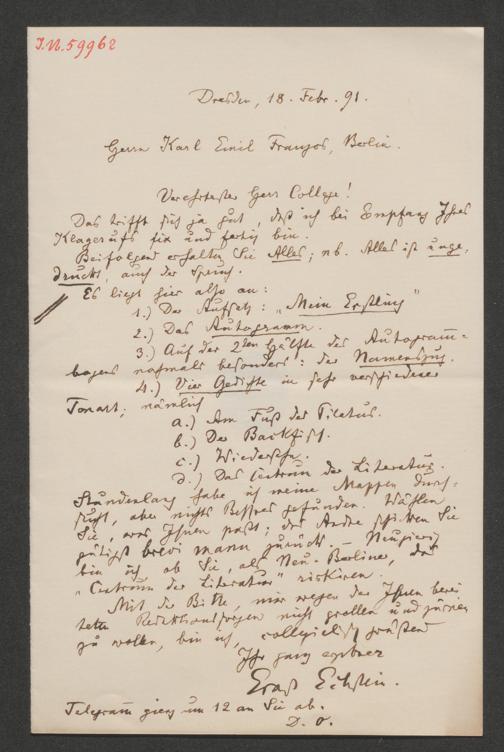 I.N. 59962
Dresden, 18. Febr. 91.
Herrn Karl Emil Franzos, Berlin.
Verehrtester Herr College!
Das trifft sich ja gut, daß ich bei Empfang Ihres
Klagerufs fix und fertig bin.
Beifolgend erhalten Sie Alles; nb. Alles ist unge,
druckt, auch der Spruch.
Es liegt hier also an:
1.) Der Aufsatz: „Mein Erstling"
2.) Das Autogramm.
3.) Auf der 2ten Hälfte des Autogramm=
bogens nochmals besonders: der Namenszug.
4.) Vier Gedichte in sehr verschiedener
Tonart; nämlich
a.) Am Fuß des Pilatus.
b.) Der Backfisch.
c.) Wiedersehn.
d.) Das Centrum der Literatur.
Stundenlang habe ich meine Mappen durch=
sucht, aber nichts Bessres gefunden. Wählen
Sie, was Ihnen paßt; das Andre schicken Sie
gütigst brevi manu zurück. – Neugierig
bin ich ob Sie, als Neu-Berliner, das
„Centrum der Literatur" riskiren.
Mit der Bitte, mir wegen der Ihnen berei
teten Redaktionssorgen nicht grollen und zürnen
zu wollen, bin ich, collegialisch grüßend
Ihr ganz ergebner
Ernst Eckstein.
Telegramm ging um 12 an Sie ab.
D. O.